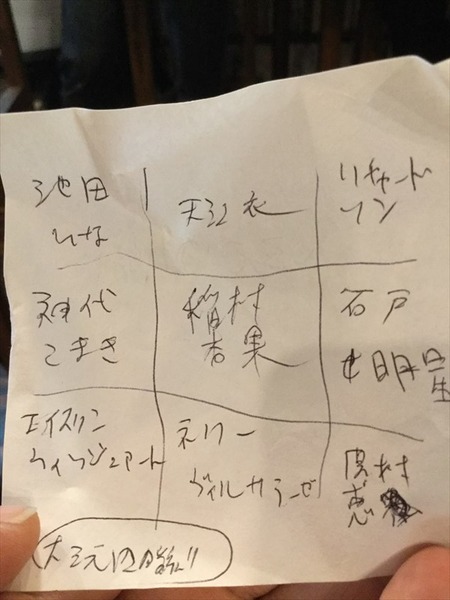 池田
ひな
天江衣
リチャード
ソン
神代
こまき
稲村
杏果
石戸
明星
エイスリン
ウィッシュアート
ネリー
ヴィルサラーゼ
村
恵
大三元四